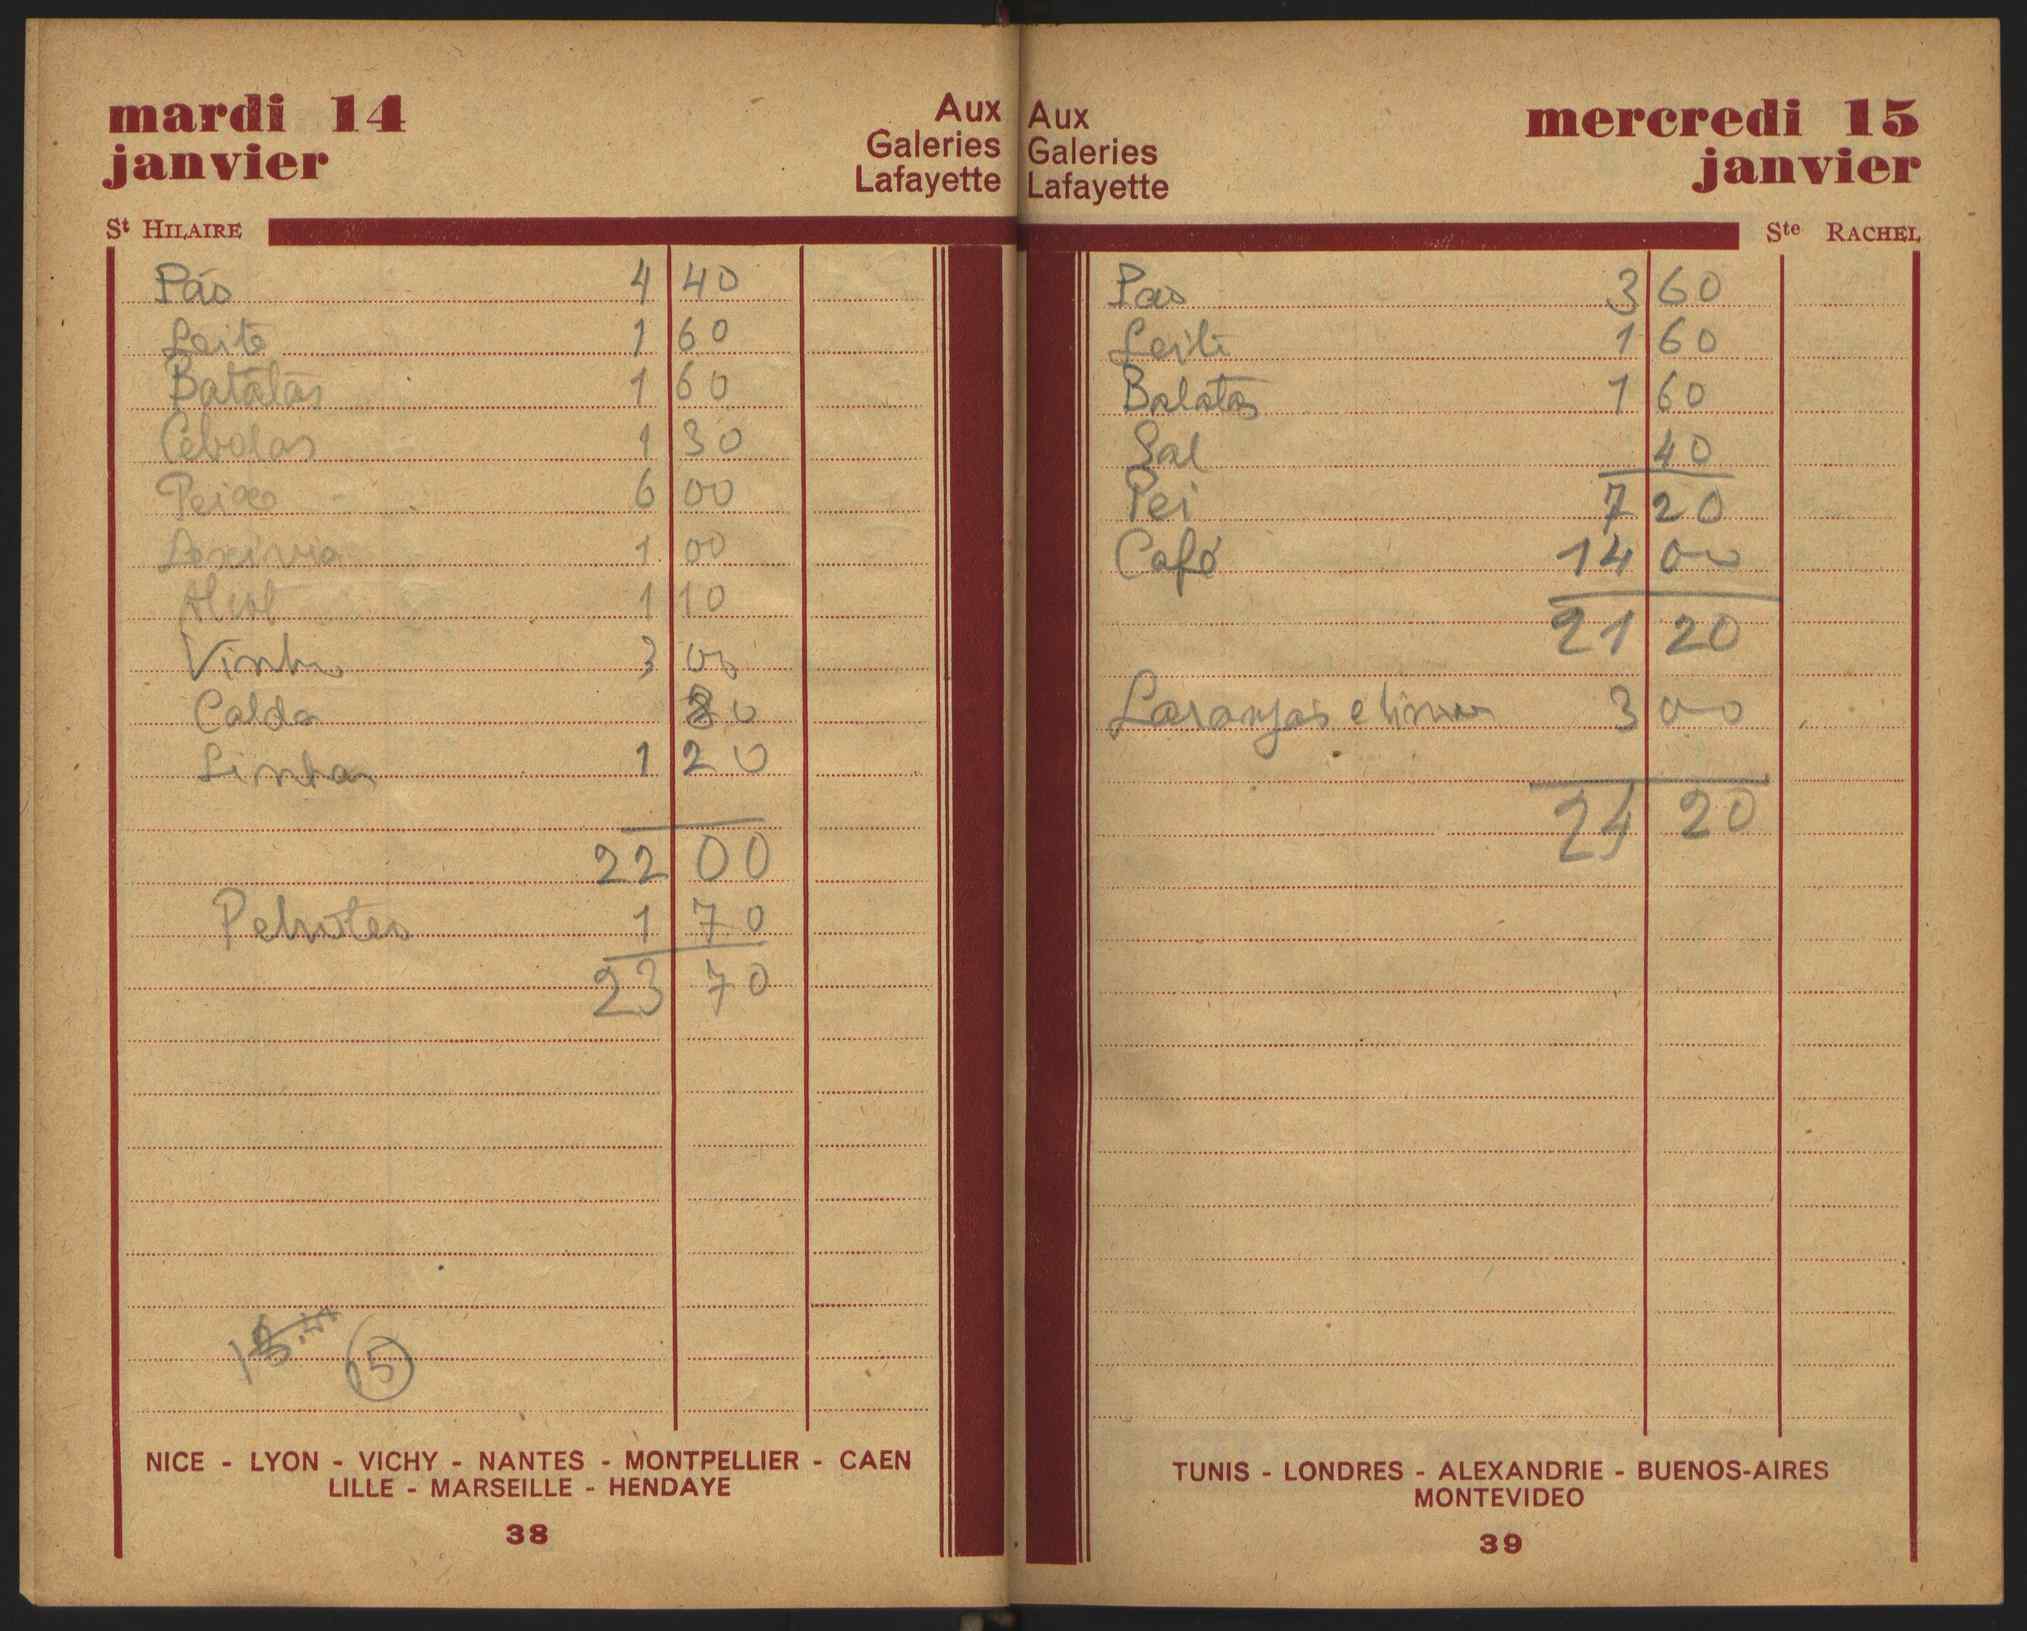 mardi 14
janvier
Aux
Galeries
Lafayette
St HILAIRE
Pão 4 40
Leite 1 60
Batatas 1 60
Cebolas 1 30
Peixe 6 00
Lexivia 1 00
Alcol 1 10
Vinho 3 00
Calda 80
Linhas 1 20
22 00
1 70
23 70
15
NICE - LYON - VICHY - NANTES - MONTPELLIER - CAEN
LILLE - MARSEILLE - HENDAYE
38
Aux
Galeries
Lafayette
mercredi 15
janvier
Ste RACHEL
Pao 3 60
Leite 1 60
Batatas 1 60
Sal 40
Pei 7 20
Café 14 00
21 20
Laranjas e 3 00
24 20
TUNIS - LONDRES - ALEXANDRIE - BUENOS-AIRES
MONTEVIDEO
39